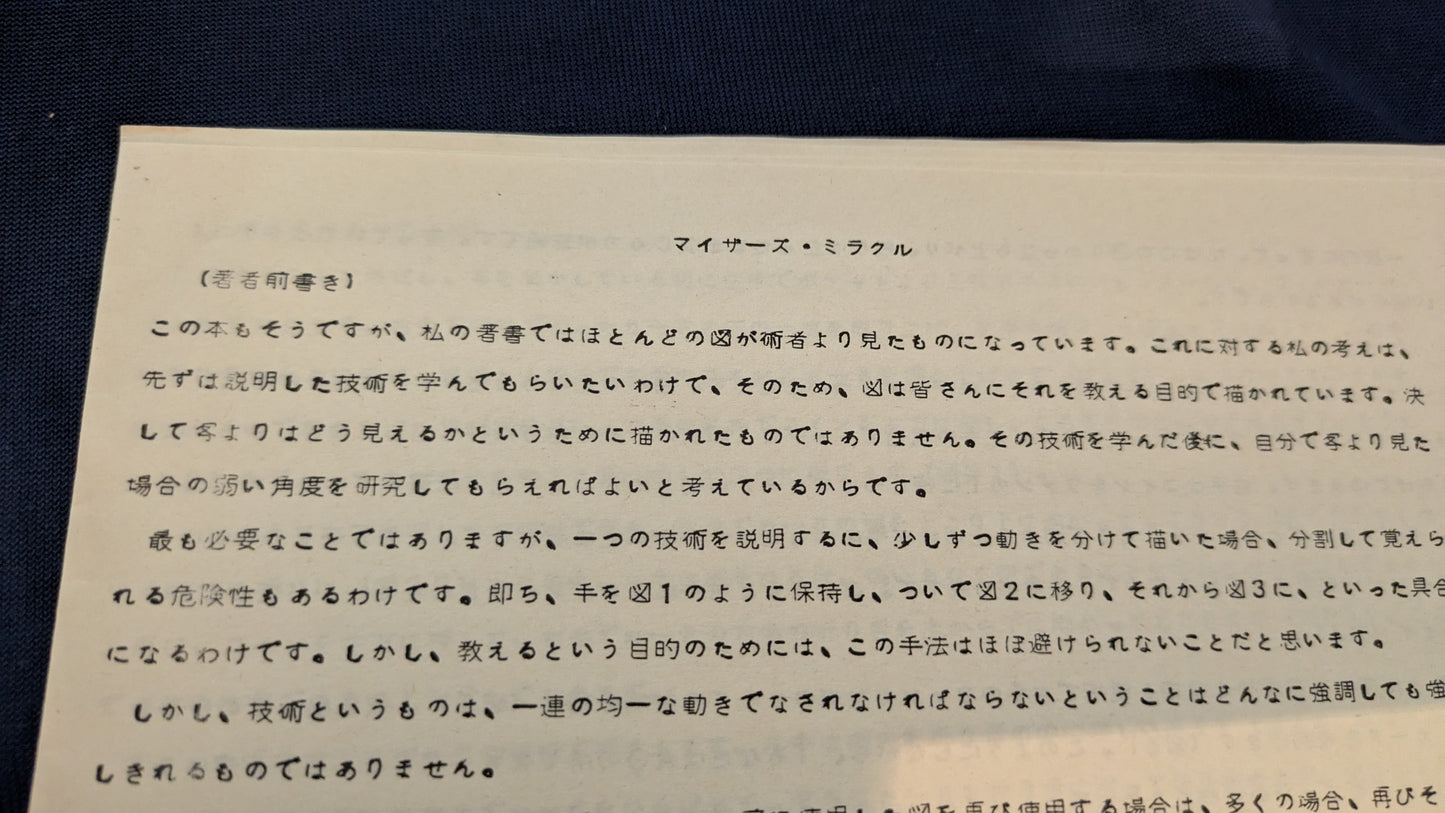 マイザーズ・ミラクル
(著者前書き)
この本もそうですが、私の著書ではほとんどの図が術者より見たものになっています。これに対する私の考えは、
先ずは説明した技術を学んでもらいたいわけで、そのため、図は皆さんにそれを教える目的で描かれています。決
して客よりはどう見えるかというために描かれたものではありません。その技術を学んだ後に、自分で客より見た
場合の弱い角度を研究してもらえればよいと考えているからです。
最も必要なことではありますが、一つの技術を説明するに、少しずつ動きを分けて描いた場合、分割して覚えら
れる危険性もあるわけです。即ち、手を図1のように保持し、ついで図2に移り、それから図3に、といった具合
になるわけです。しかし、教えるという目的のためには、この手法はほぼ避けられないことだと思います。
しかし、技術というものは、一連の均一な動きでなされなければならないということはどんなに強調しても強
しきれるものではありません。
図を再び使用する場合は、多くの場合、再びそ